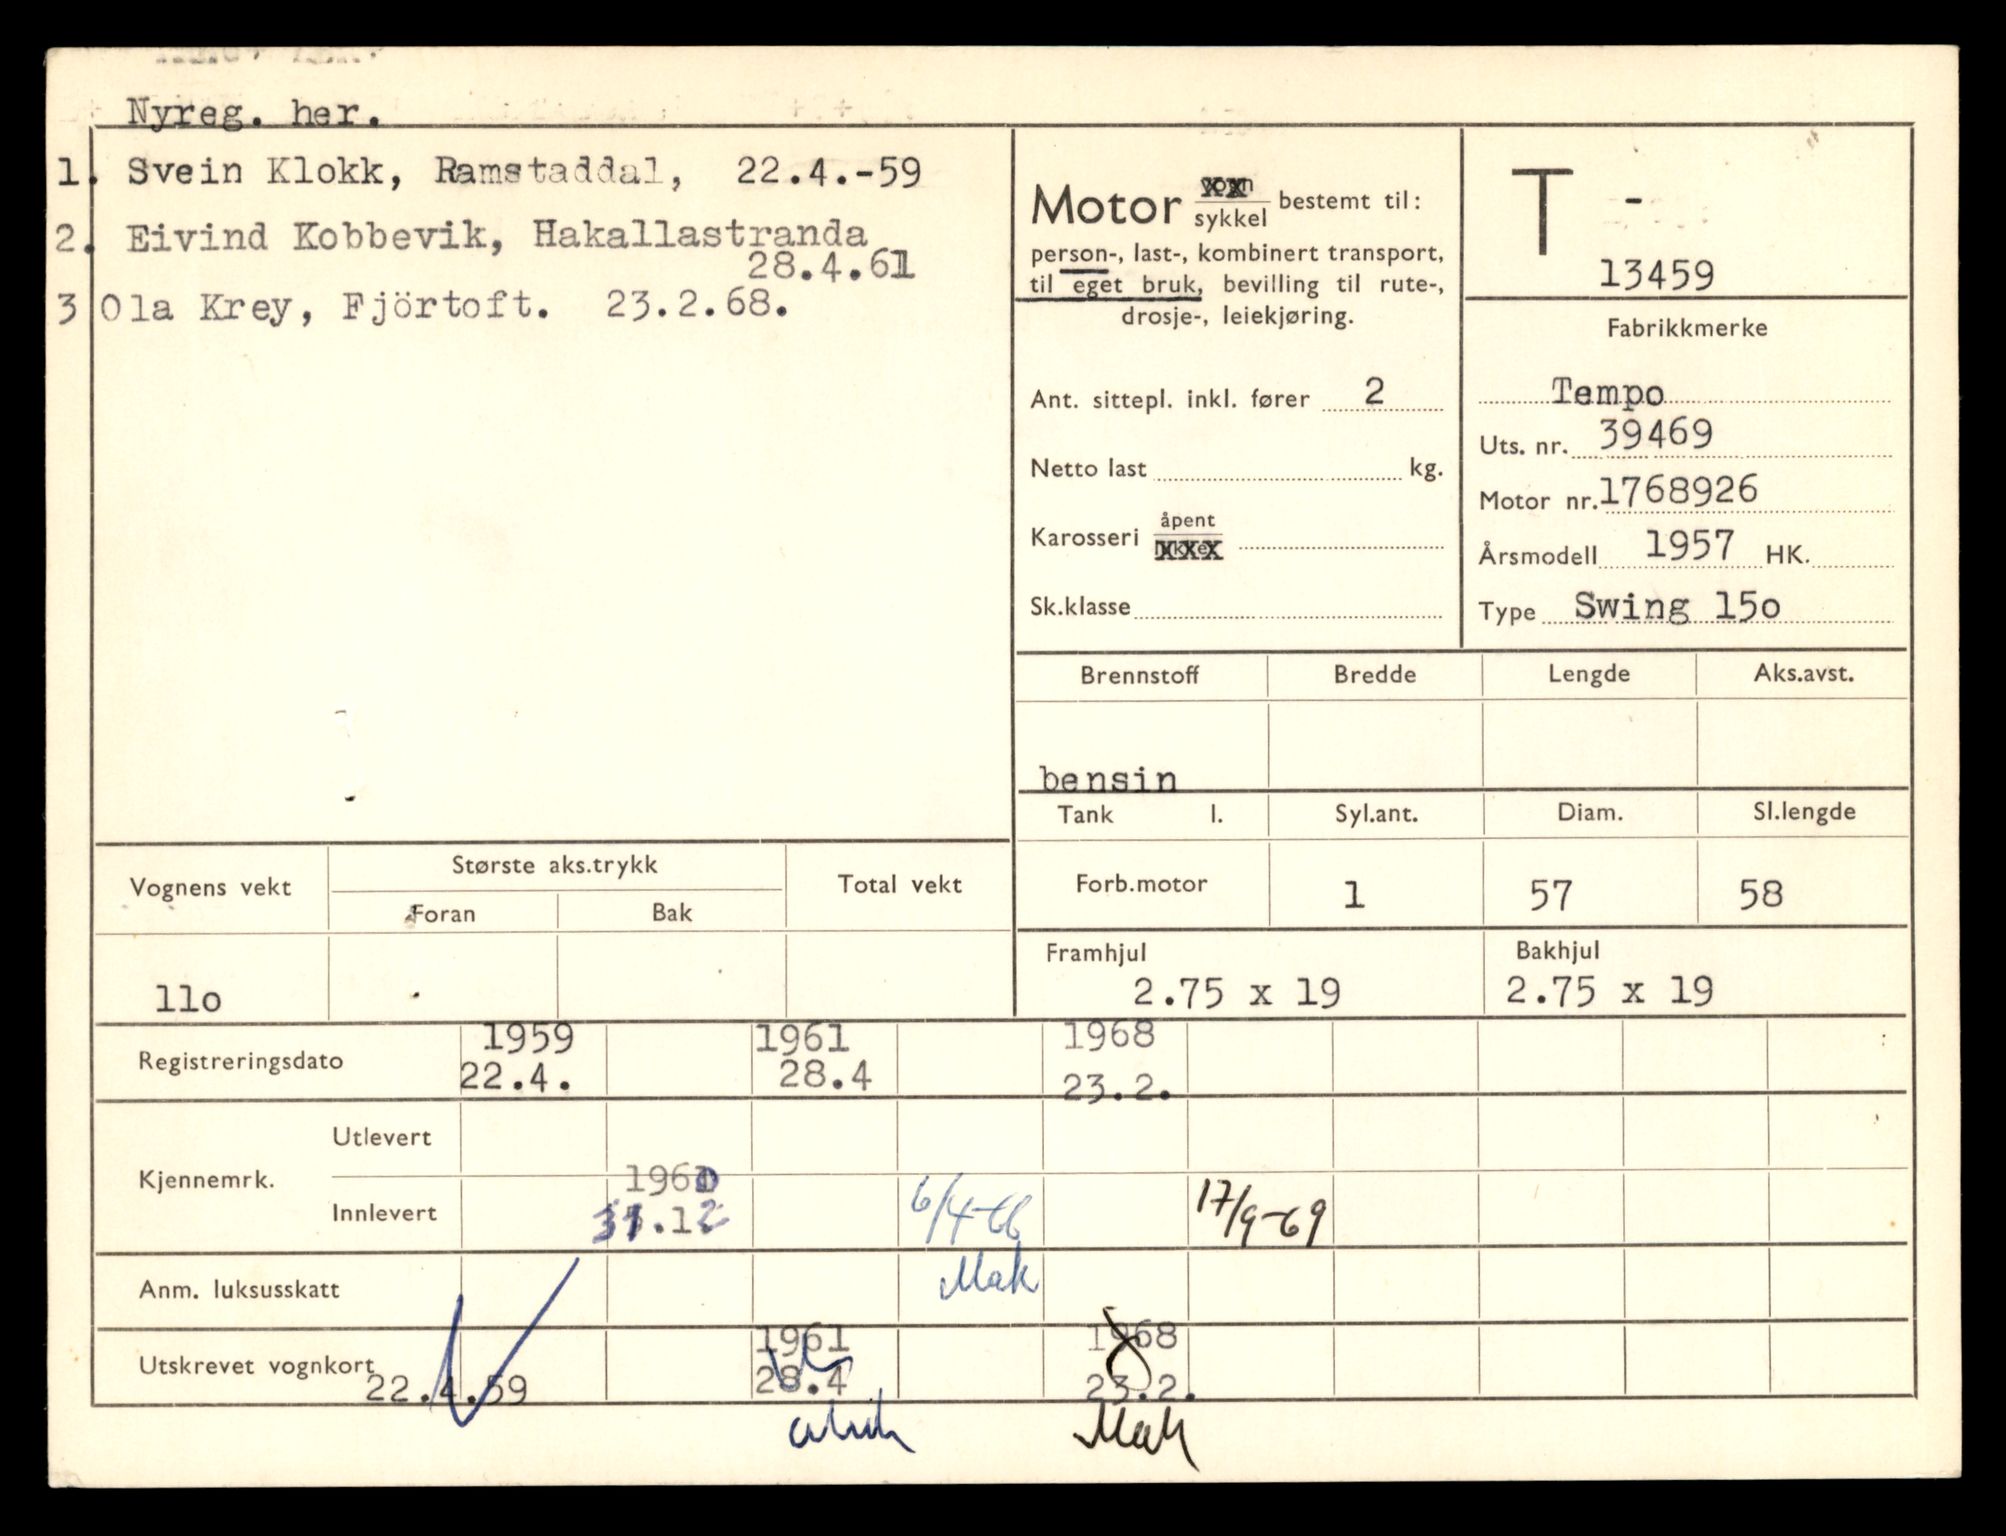 Nyreg. her.
1. Svein Klokk, Ramstaddal, 22.4.-59
2. Eivind Kobbevik, Hakallastranda
28.4.61
3 Ola Krey, Fjörtoft. 23.2.68.
Motor sykkel bestemt til:
person-, last-, kombinert transport,
til eget bruk, bevilling til rute-,
drosje-, leiekjøring.
Ant. sittepl. inkl. fører 2
Netto last kg.
Karosseri åpent
Sk.klasse
T -
13459
Fabrikkmerke
Tempo
Uts. nr. 39469
Motor nr. 1768926
Årsmodell 1957 HK.
Type Swing 15o
Brennstoff Bredde Lengde Aks.avst.
bensin
Tank l. Syl.ant. Diam. Sl.lengde
Forb.motor 1 57 58
Framhjul Bakhjul
2.75 x 19 2.75 x 19
Vognens vekt Største aks.trykk Total vekt
Foran Bak
11o
Registreringsdato 1959 1961 1968
22.4. 28.4 23.2.
Kjennemrk. Utlevert
Innlevert 1960 31.12 6/4-66 17/9-69
Mak
Anm. luksusskatt
Utskrevet vognkort 22.4.59 1961 28.4 1968 23.2.
Mak